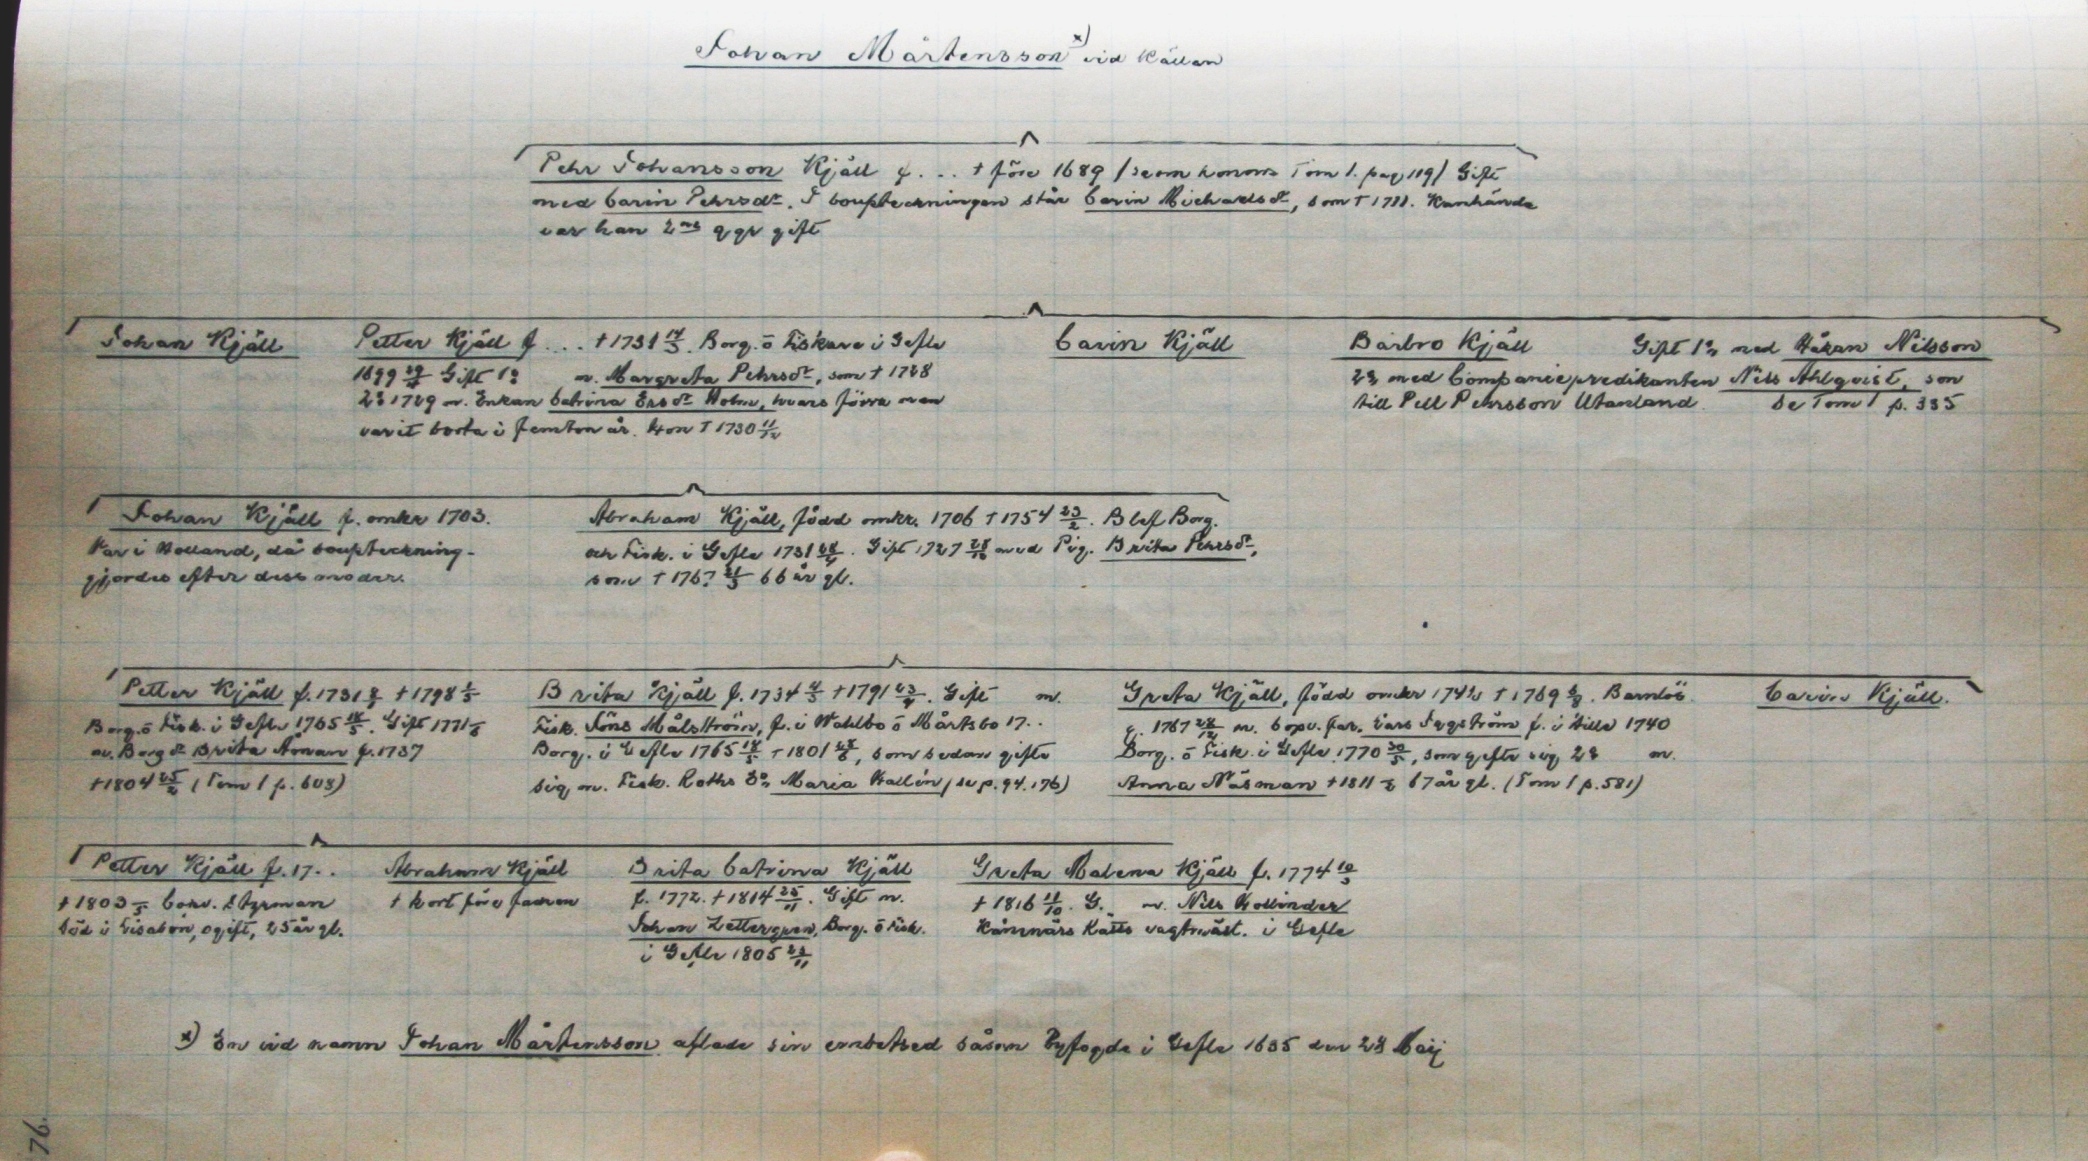 Johan Mårtensson x) vid Källan
Pehr Johansson Kjäll f. ... † före 1689 (se om honom Tom 1. pag 119) Gift
med Carin Pehrsdr. I bouppteckningen står Carin Michaelsdr, som † 1711. Kanhända
var han 2ne ggr gift
Johan Kjäll
Petter Kjäll f. ... † 1731 14/3. Borg. ö Fiskare i Gefle
1699 Gift 1o m. Margreta Pehrsdr, som † 1728
2o 1729 m. Enkan Catrina Ersdr Holm, hvars förra man
varit borta i femton år. Hon † 1730 11/12
Carin Kjäll
Barbro Kjäll Gift 1o med Håkan Nilsson
2o med Companiepredikanten Nils Ahlqvist, son
till Pell Pehrsson Utanland. Se Tom 1 p. 335
Johan Kjäll f. omkr 1703.
Var i Holland, då bouppteckning-
gjordes efter dess moder.
Abraham Kjäll, född omkr. 1706 † 1754 23/2. Blef Borg.
och Fisk. i Gefle 1731. Gift 1727 med Pig. Brita Pehrsdr,
som † 1767 21/3 66 år gl.
Petter Kjäll f. 1731 † 1798 1/5
Borg. ö Fisk. i Gefle 1765 18/5. Gift 1771
m. Borgdr Brita Åman f. 1737
† 1804 25/2 (Tom 1 p. 608)
Brita Kjäll f. 1734 4/5 † 1791 23/4. Gift m.
Fisk. Jöns Målström, f. i Wahlbo ö Mårtsbo 17..
Borg. i Gefle 1765 18/5 † 1801, som sedan gifte
sig m. Fisk. Roths Do Maria Hallin (se p. 94. 176)
Greta Kjäll, född omkr 1742 † 1769. Barnlös
g. 1767 28/12 m. Copv. far. Lars Fygström f. i Hille 1740
Borg. ö Fisk. i Gefle 1770 30/5, som gifte sig 2o m.
Anna Näsman † 1811 67 år gl. (Tom 1 p. 581)
Carin Kjäll.
Petter Kjäll f. 17..
† 1803 Copv. Styrman
död i Lisabon, ogift, 25 år gl.
Abraham Kjäll
† kort före fadren
Brita Catrina Kjäll
f. 1772. † 1814 25/11. Gift m.
Johan Zettergren, Borg. ö Fisk.
i Gefle 1805 23/11
Greta Malena Kjäll f. 1774 10/3
† 1816 11/10. G. m. Nils Hollinder
Kämnärs Rätts vagtmäst. i Gefle
x) En vid namn Johan Mårtensson aflade sin embetsed såsom Byfogde i Gefle 1635 den 28 Maij
76.